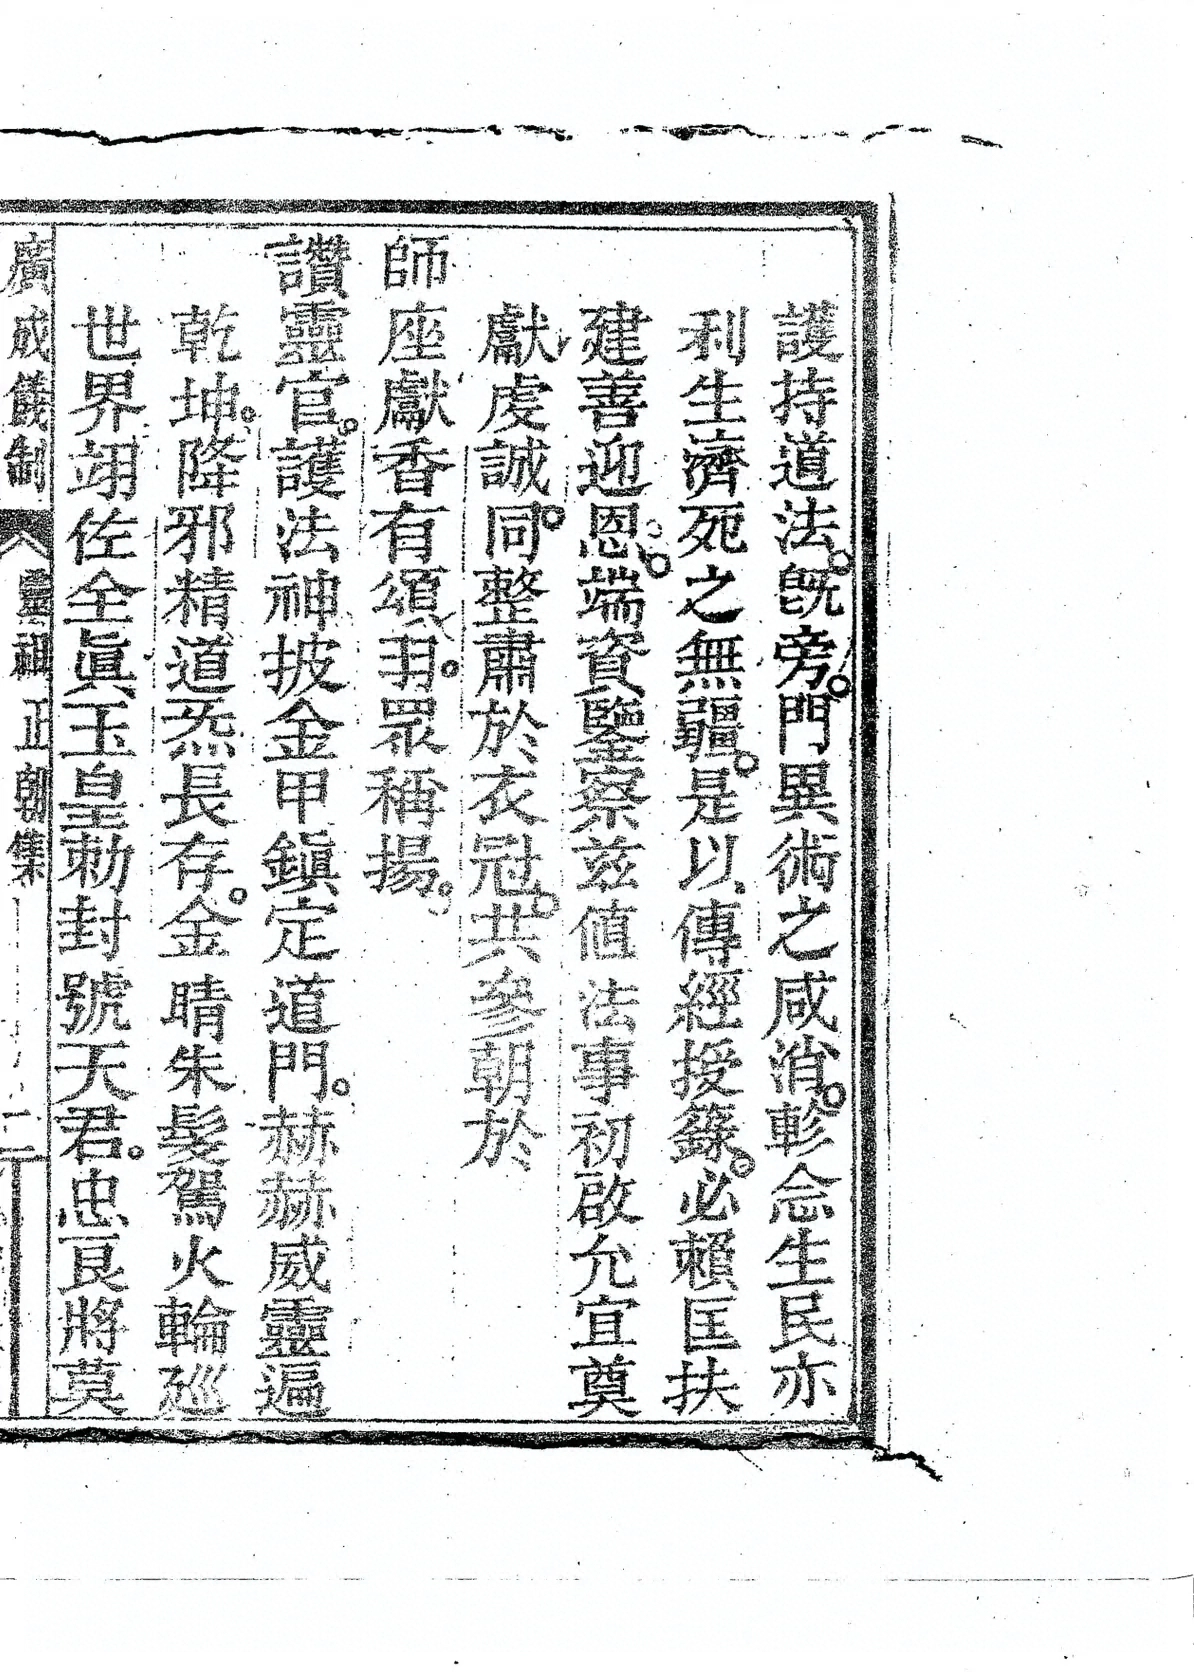 護持道法。旣旁。門異術之咸消。軫念生民亦
利生濟死之無疆。是以傳經授籙。必賴匡扶
建善迎恩。端資鑒察兹値法事初啟允宜奠
獻虔誠同。整肅於衣冠。共參朝於
師座獻香有頌。羽眾稱揚。
讚靈官。護法神披金甲鎮定道門。赫赫威靈遍
乾坤。降邪精道炁長存。金睛朱髮駕火輪巡
世界翊佐全眞玉皇勅封號天君。忠良將莫
廣成儀制 靈祖正朝集 二